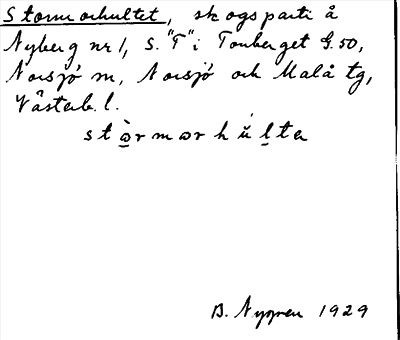 Stormorhultet, skogsparti å
Nyberg nr 1, S. "T" i Tonberget G. 50,
Norsjö sn, Norsjö och Malå tg,
Västerb. l.
B. Nygren 1929